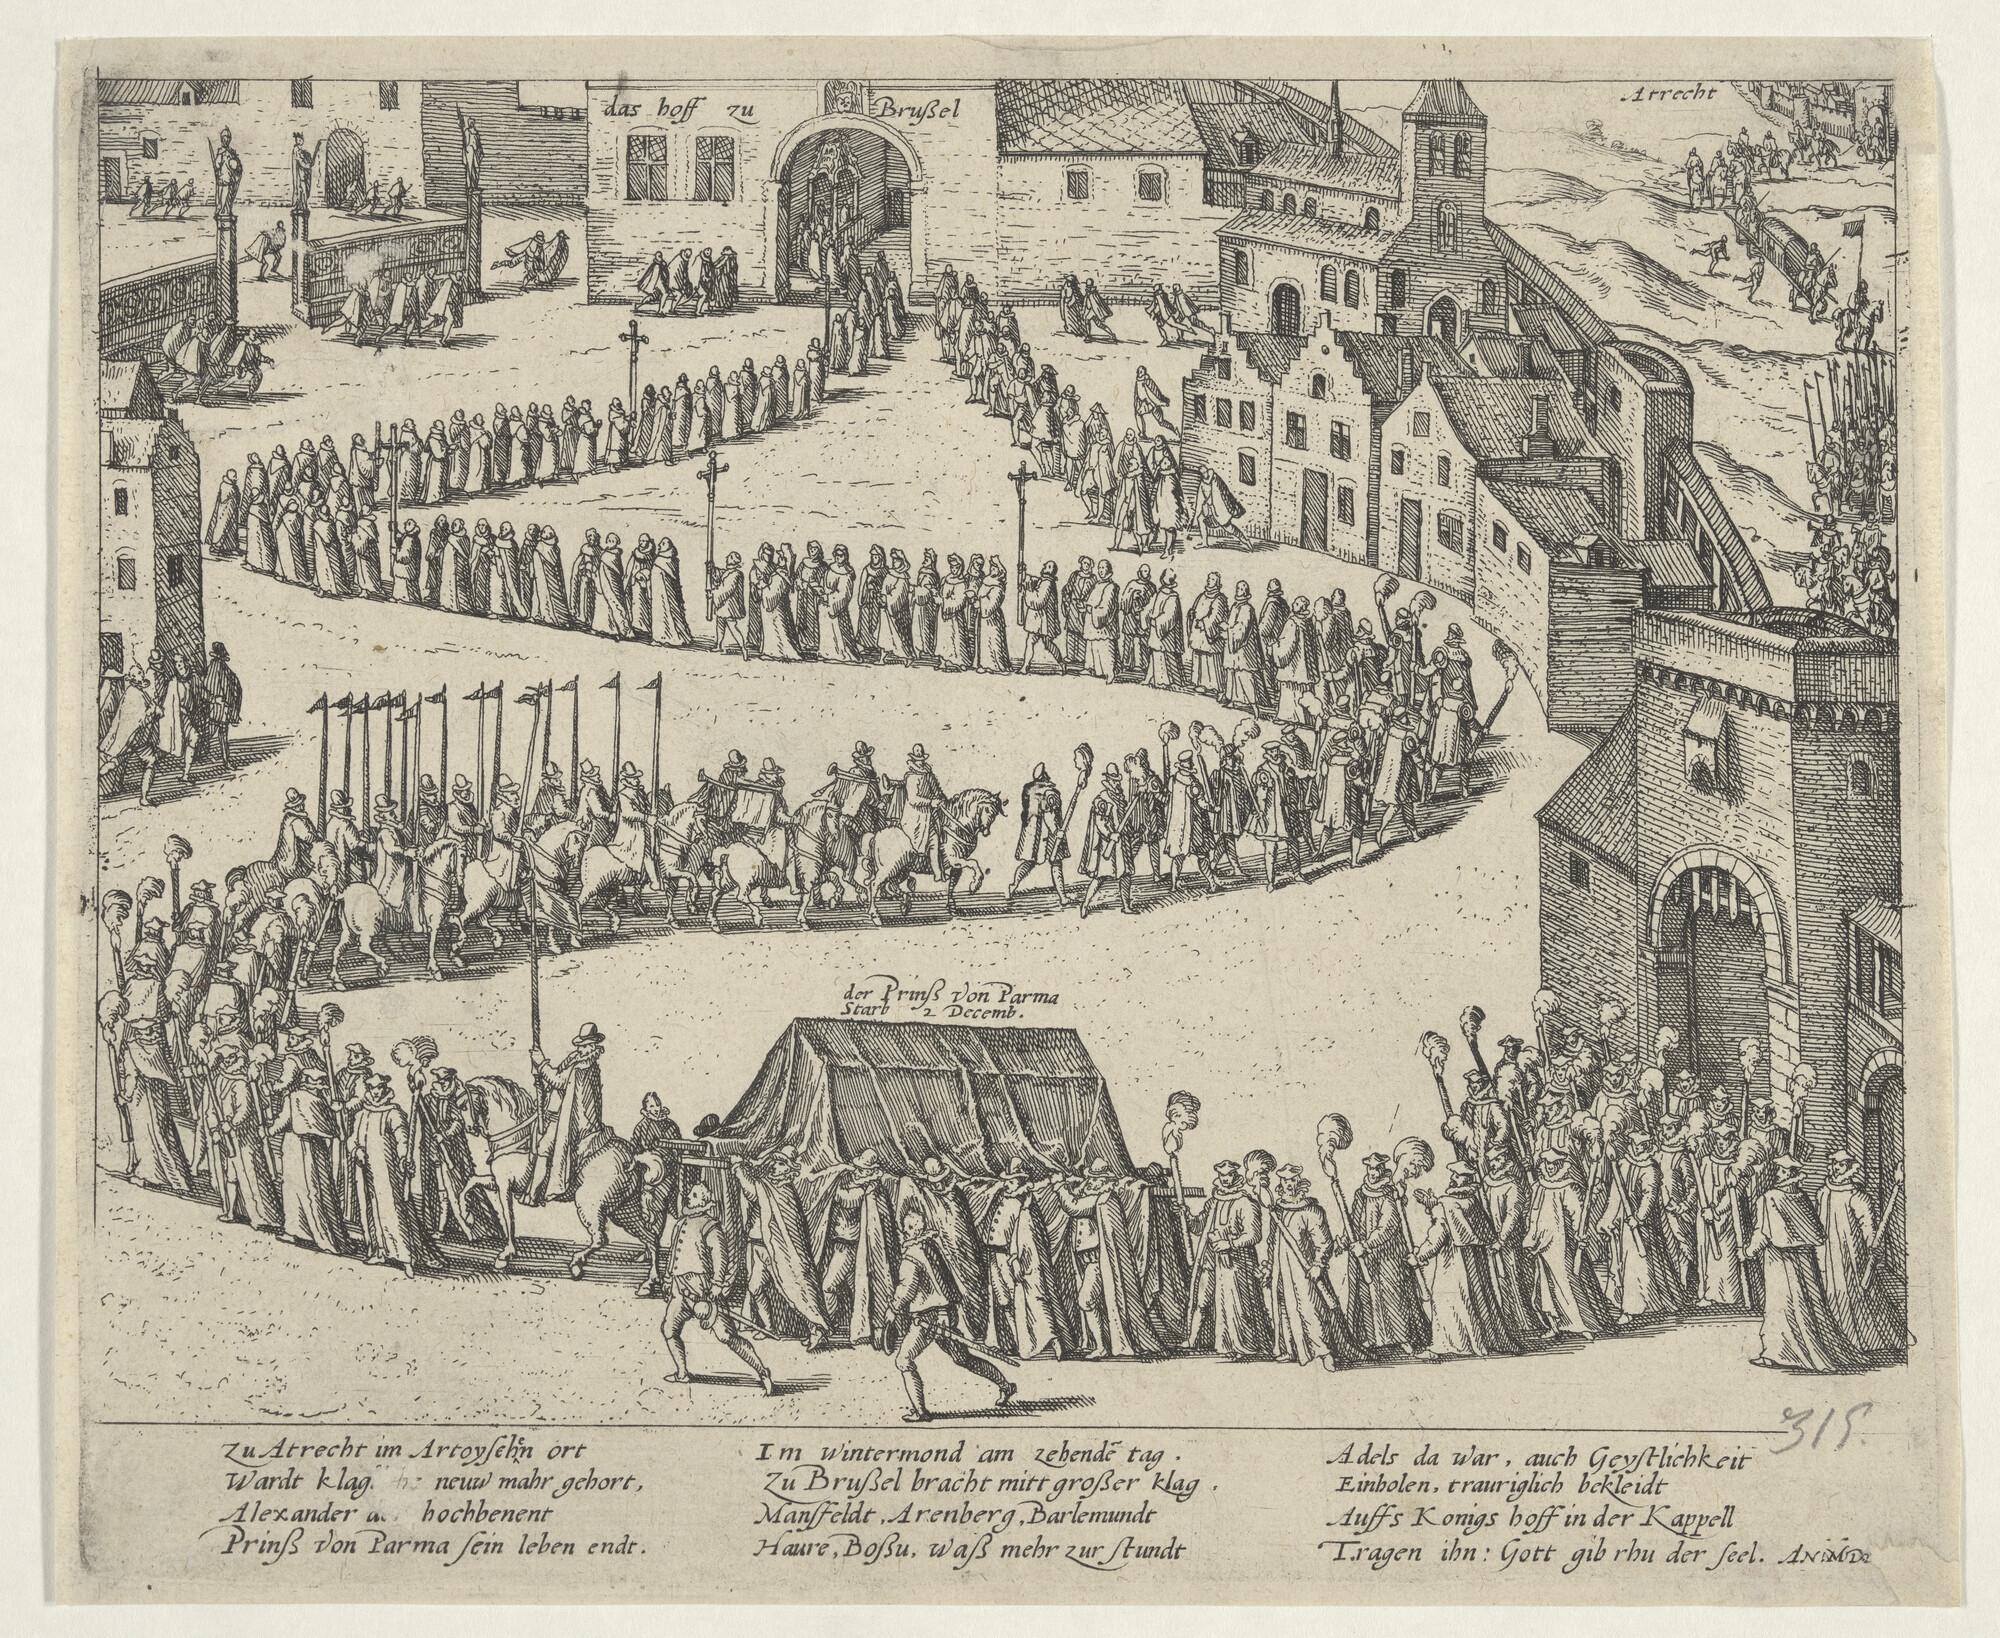 das hoff zu Brußel
Atrecht
der Prinß von Parma
Starb 2 Decemb.
Zu Atrecht im Artoysehn ort
Wardt klag neuw mahr gehort,
Alexander hochbenent
Prinß von Parma sein leben endt.
Im wintermond am zehendē tag.
Zu Brußel bracht mitt großer klag.
Mansfeldt, Arenberg, Barlemundt
Haure, Boßu, waß mehr zur stundt
Adels da war, auch Geystlichkeit
Einholen, trauriglich bekleidt
Auffs Konigs hoff in der Kappell
Tragen ihn: Gott gib rhu der seel.
315.